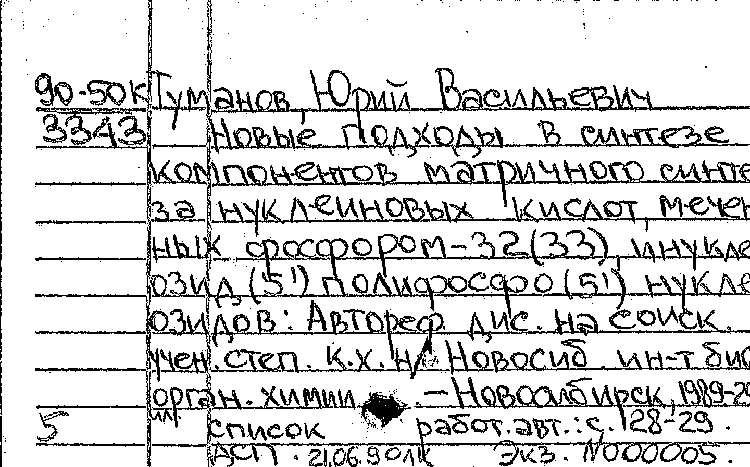 90-50К Туманов, Юрий Васильевич
3343 Новые подходы в синтезе
компонентов матричного синте
за нуклеиновых кислот, мечен
ных фосфором-32(33), и нукле
озид(5') полифосфо(5') нукле
озидов: Автореф. дис. на соиск.
учен. степ. к.х.н. Новосиб. ин-т био
орган. химии. — Новосибирск, 1989-29
ил.
5 список работ. авт.: с. 28-29.
ДСП. 21.06.90 ЛК Экз. N000005.